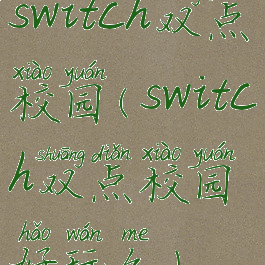 switch双点
xiào yuán
校园（switc
shuāng diǎn xiào yuán
h双点校园
hǎo wán me
好玩么）